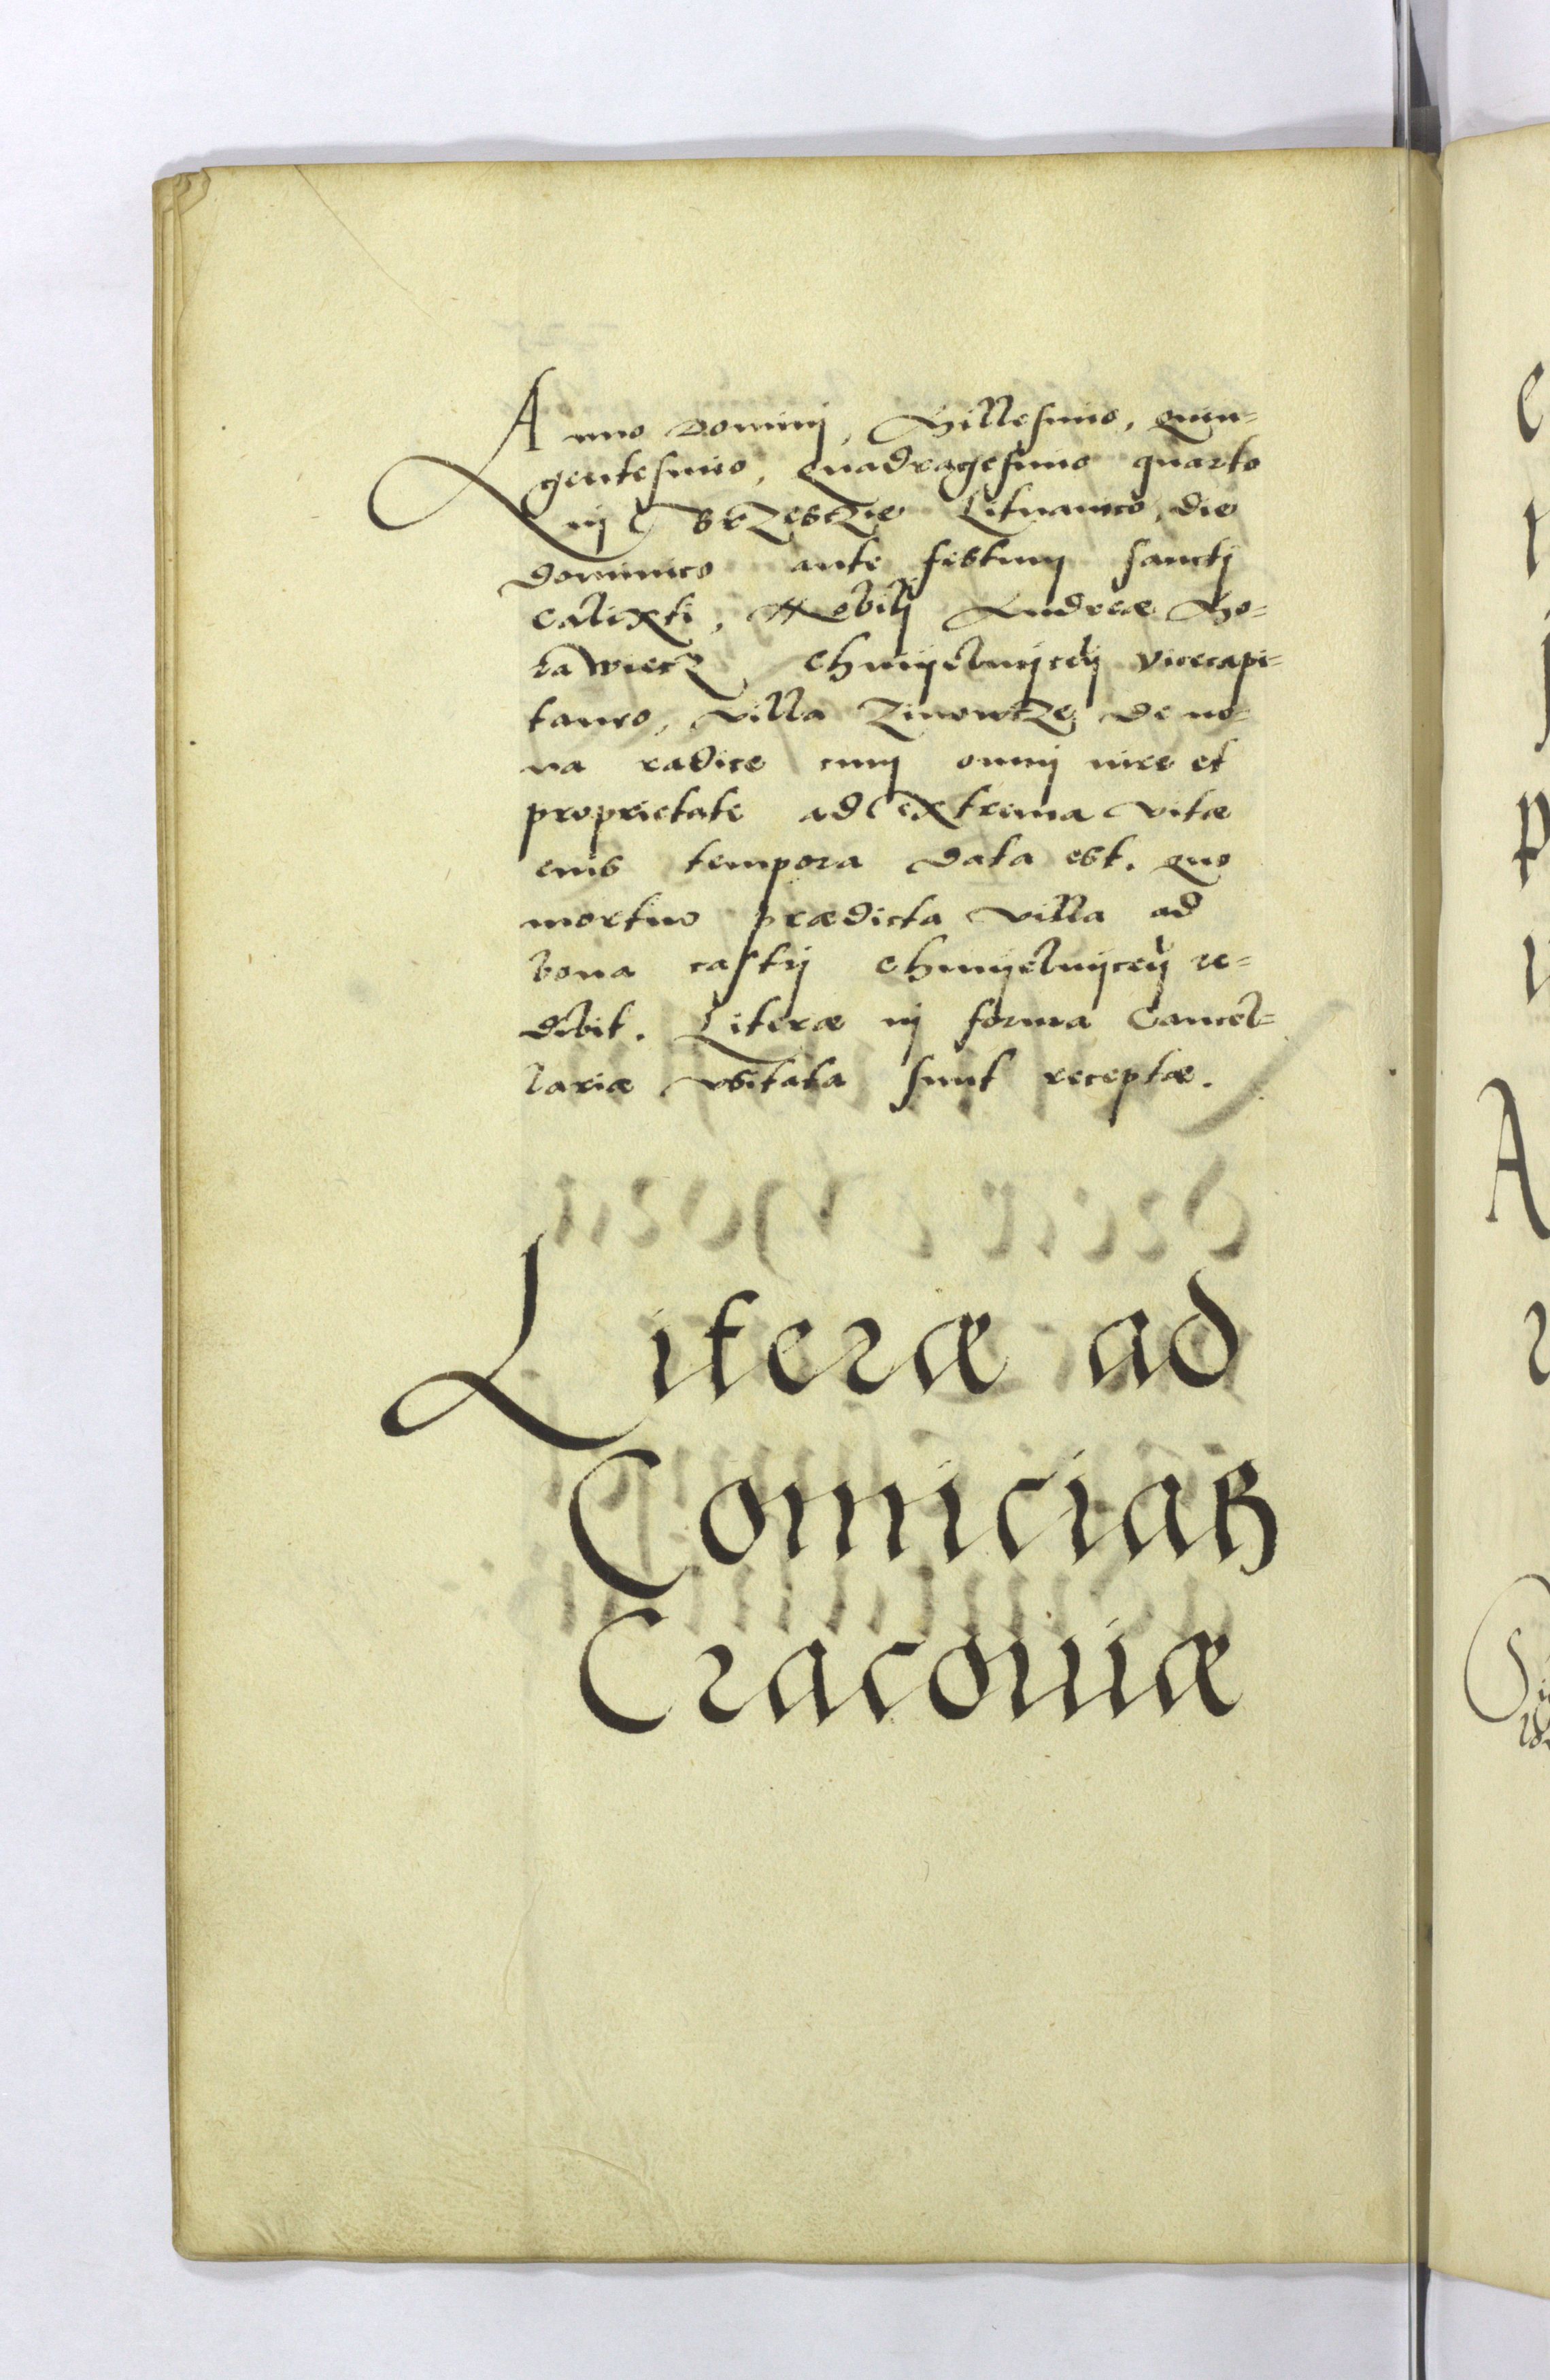 Anno Dominj, Millesimo, quin=
gentesimo, quadragesimo quarto
in Brzesczie Lituanico, die
dominico ante festum sanctj
Calixti, Nobilj Andreæ Mo=
rawiecz, Chmijelnijceñ vicecapi=
taneo, villa Zinowcze de no=
va radice cum omnj iure et
proprietate ad extrema vitæ
eius tempora data est. quo
mortuo prædicta villa ad
bona castrj Chmijelnijceñ re=
dibit. Literæ in forma Cancel=
lariæ vsitata sunt receptæ.
Literæ ad
Comicia
Craconiæ